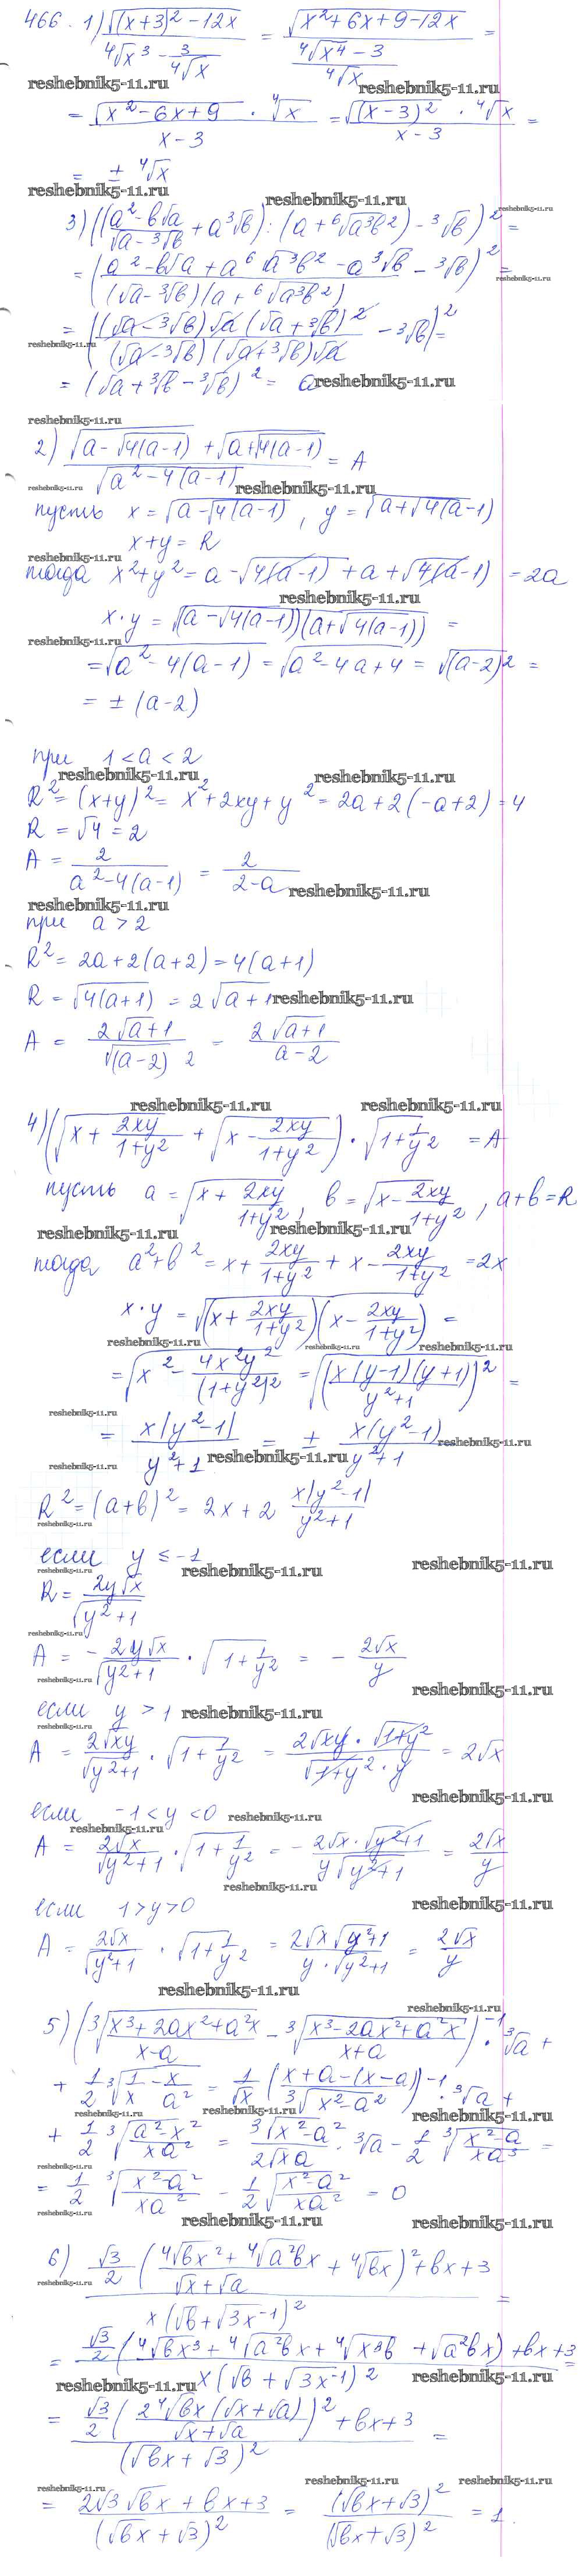 466. 1) √((x+3)² - 12x) / (⁴√x³ - 3/⁴√x) = √(x² + 6x + 9 - 12x) / ((⁴√x⁴ - 3)/⁴√x) =
reshebnik5-11.ru reshebnik5-11.ru
= √(x² - 6x + 9) · ⁴√x / (x - 3) = √((x-3)²) · ⁴√x / (x - 3) =
= ± ⁴√x
reshebnik5-11.ru reshebnik5-11.ru reshebnik5-11.ru
3) ((a² - b√a)/(√a - ³√b) + a³√b) : (a + ⁶√(a³b²)) - ³√b)² =
= ((a² - b√a + a⁶√(a³b²) - a³√b)/((√a - ³√b)(a + ⁶√(a³b²))) - ³√b)² =
= (((√a - ³√b)√a(√a + ³√b)²)/((√a - ³√b)(√a + ³√b)√a) - ³√b)² =
reshebnik5-11.ru
= (√a + ³√b - ³√b)² = a
reshebnik5-11.ru
reshebnik5-11.ru
2) (√(a - √4(a-1)) + √(a + √4(a-1))) / √(a² - 4(a-1)) = A
reshebnik5-11.ru reshebnik5-11.ru
пусть x = √(a - √4(a-1)), y = √(a + √4(a-1))
x + y = R
reshebnik5-11.ru
тогда x² + y² = a - √4(a-1) + a + √4(a-1) = 2a
reshebnik5-11.ru
x · y = √((a - √4(a-1))(a + √4(a-1))) =
reshebnik5-11.ru
= √(a² - 4(a-1)) = √(a² - 4a + 4) = √((a-2)²) =
= ± (a-2)
при 1 < a < 2
reshebnik5-11.ru reshebnik5-11.ru
R² = (x+y)² = x² + 2xy + y² = 2a + 2(-a+2) = 4
R = √4 = 2
A = 2/(a² - 4(a-1)) = 2/(2-a)
reshebnik5-11.ru
reshebnik5-11.ru
при a > 2
R² = 2a + 2(a+2) = 4(a+1)
R = √4(a+1) = 2√a+1
reshebnik5-11.ru
A = 2√a+1 / √(a-2)² = 2√a+1 / (a-2)
reshebnik5-11.ru reshebnik5-11.ru
4) (√(x + 2xy/(1+y²)) + √(x - 2xy/(1+y²))) · √(1 + 1/y²) = A
пусть a = √(x + 2xy/(1+y²)), b = √(x - 2xy/(1+y²)), a+b = R
reshebnik5-11.ru reshebnik5-11.ru
тогда a² + b² = x + 2xy/(1+y²) + x - 2xy/(1+y²) = 2x
x · y = √((x + 2xy/(1+y²))(x - 2xy/(1+y²))) =
reshebnik5-11.ru reshebnik5-11.ru reshebnik5-11.ru
= √(x² - 4x²y²/(1+y²)²) = √((x(y-1)(y+1)/(y²+1))²) =
reshebnik5-11.ru
= x|y²-1|/(y²+1) = ± x(y²-1)/(y²+1)
reshebnik5-11.ru reshebnik5-11.ru reshebnik5-11.ru
R² = (a+b)² = 2x + 2 x|y²-1|/(y²+1)
reshebnik5-11.ru
если y ≤ -1
reshebnik5-11.ru reshebnik5-11.ru
R = 2y√x / √(y²+1)
reshebnik5-11.ru
A = - 2y√x/√(y²+1) · √(1 + 1/y²) = - 2√x/y
reshebnik5-11.ru reshebnik5-11.ru
reshebnik5-11.ru
если y > 1
reshebnik5-11.ru
reshebnik5-11.ru
A = 2√xy/√(y²+1) · √(1 + 1/y²) = 2√xy · √(1+y²) / (√(1+y²) · y) = 2√x
reshebnik5-11.ru
если -1 < y < 0
reshebnik5-11.ru
reshebnik5-11.ru
A = 2√x/√(y²+1) · √(1 + 1/y²) = - 2√x · √(y²+1) / (y√(y²+1)) = 2√x/y
reshebnik5-11.ru
если 1 > y > 0
reshebnik5-11.ru
A = 2√x/√(y²+1) · √(1 + 1/y²) = 2√x√(y²+1) / (y · √(y²+1)) = 2√x/y
reshebnik5-11.ru
reshebnik5-11.ru
5) (³√((x³ + 2ax² + a²x)/(x-a)) - ³√((x³ - 2ax² + a²x)/(x+a)))⁻¹ · ³√a +
+ 1/2 ³√(1/x - x/a²) = 1/√x ((x+a-(x-a))/³√(x²-a²))⁻¹ · ³√a +
reshebnik5-11.ru reshebnik5-11.ru reshebnik5-11.ru
+ 1/2 ³√((a²-x²)/(xa²)) = ³√(x²-a²)/(2√xa) · ³√a - 1/2 ³√((x²-a)/(xa³)) =
= 1/2 ³√((x²-a²)/(xa²)) - 1/2 √((x²-a²)/(xa²)) = 0
reshebnik5-11.ru reshebnik5-11.ru
6) (√3/2 ((⁴√bx² + ⁴√a²bx)/(√x + √a) + ⁴√bx)² + bx + 3) / (x(√b + √3x⁻¹)²) =
reshebnik5-11.ru
= (√3/2 (⁴√bx³ + ⁴√a²bx + ⁴√x³b + √a²bx) + bx + 3) / (x(√b + √3x⁻¹)²) =
reshebnik5-11.ru reshebnik5-11.ru
= (√3/2 (2⁴√bx(√x + √a)/(√x + √a))² + bx + 3) / (√bx + √3)² =
reshebnik5-11.ru reshebnik5-11.ru reshebnik5-11.ru
= (2√3√bx + bx + 3)/(√bx + √3)² = (√bx + √3)²/(√bx + √3)² = 1.